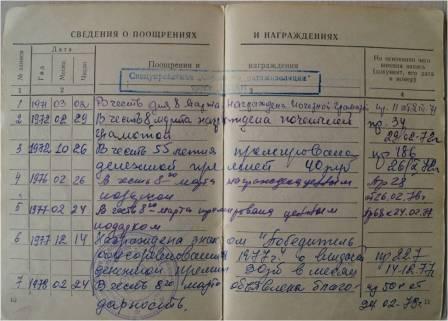 СВЕДЕНИЯ О ПООЩРЕНИЯХ И НАГРАЖДЕНИЯХ
№ записи Дата Поощрения и награждения На основании чего внесена запись (документ, его дата и номер)
Год Месяц Число
Спецуправление
1 2 3 4
1 1971 03 03 В честь дня 8 марта награждена почетной грамотой
2 1972 02 29 В честь 8 марта награждена почетной пр. 34
грамотой 29/02-72г
3 1972 10 26 В честь 55 летия премирована пр 186
денежной премией 40 руб 26/X-72
4 1976 02 26 В честь 8го марта награждена ценным Пр 28
подарком от 26.02.76г
5 1977 02 24 В честь 8го марта премирована ценным 24.02.77
подарком
6 1977 12 14 Награждена знаком "Победитель
соцсоревнования 1977г" с выдачей пр 227
денежной премии 30уб 14.12.77
7 1978 02 24 В честь 8го марта объявлена благо- пр 50к от
дарность. 24 02-78г